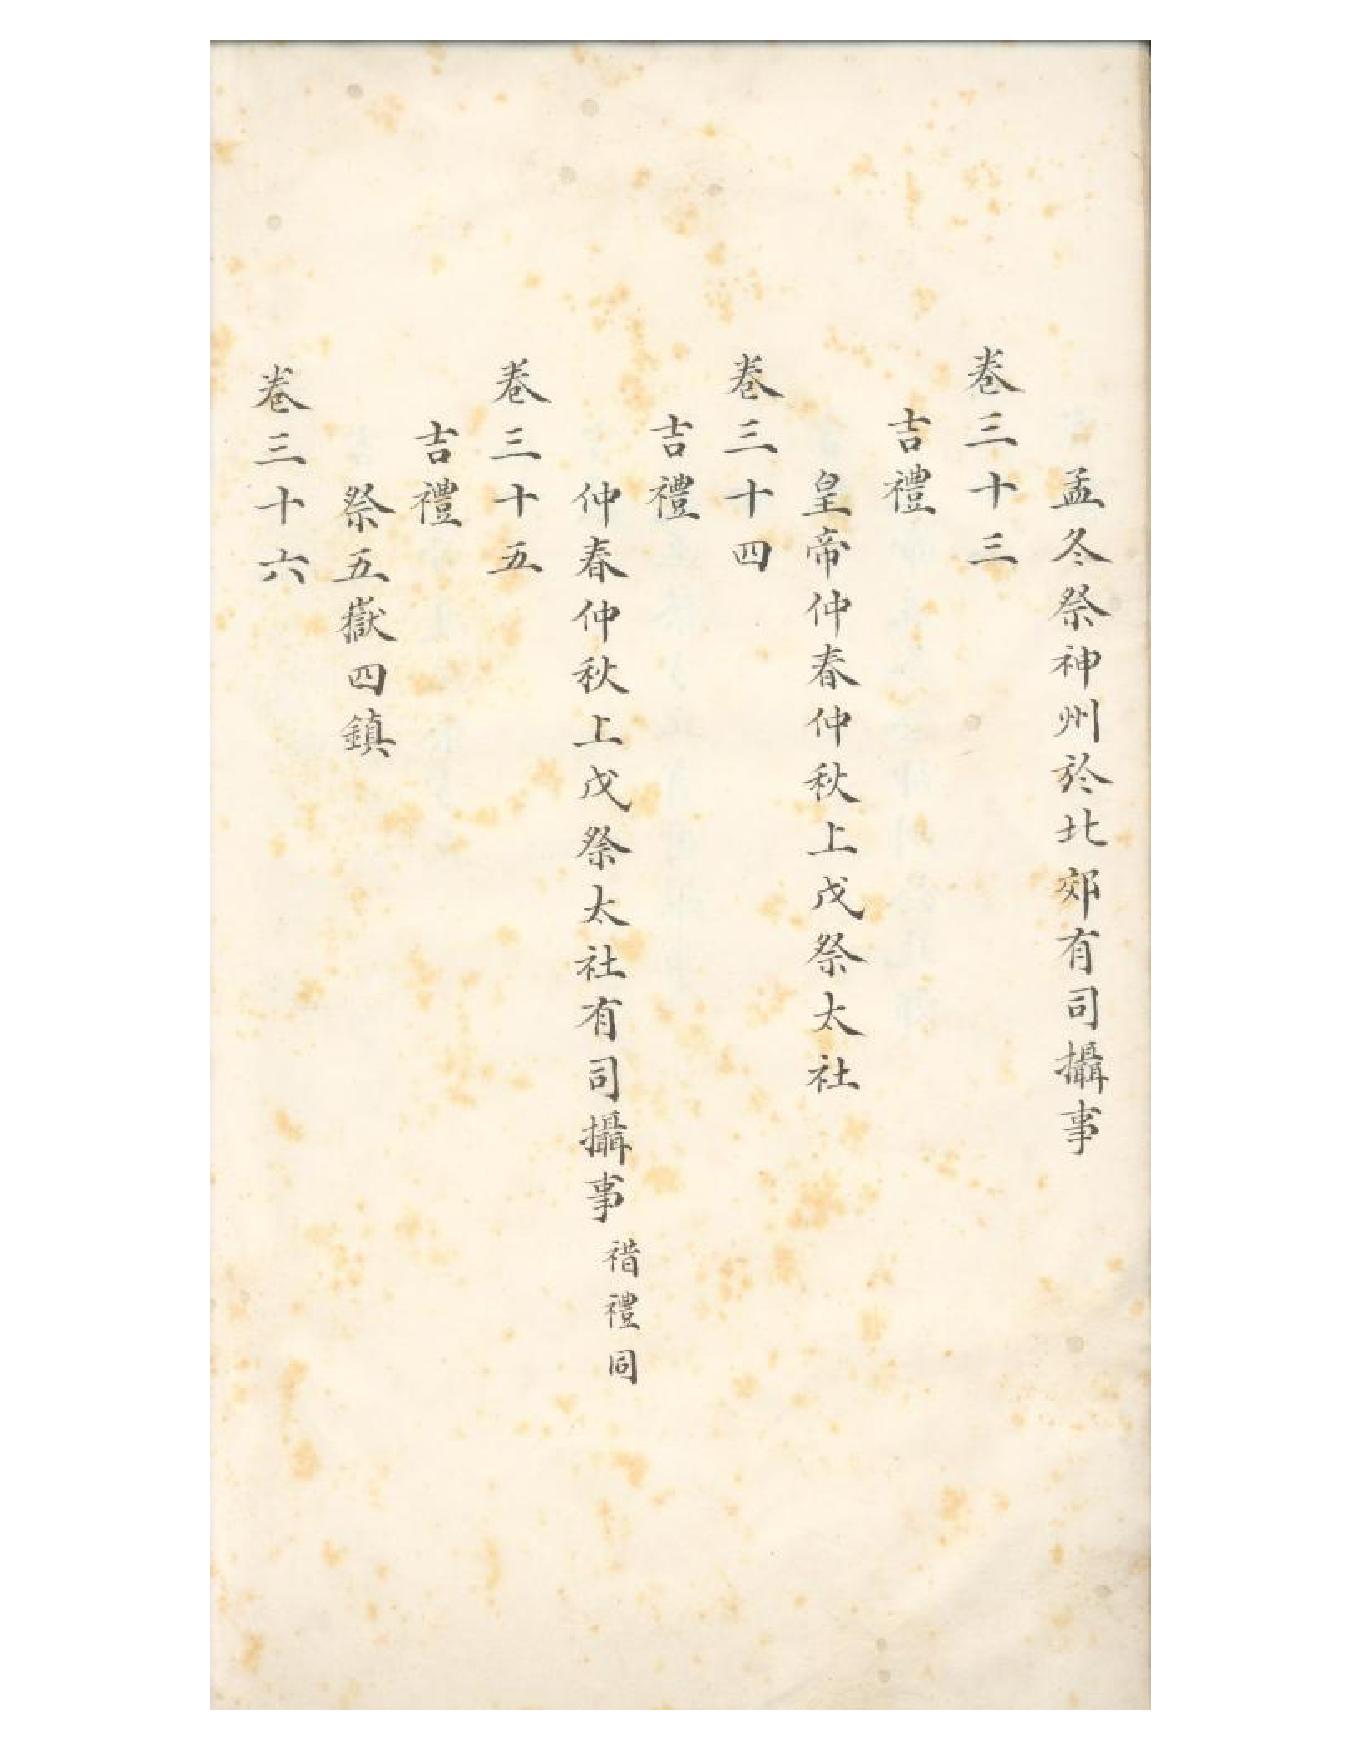 孟冬祭神州於北郊有司攝事
卷三十三
吉禮
皇帝仲春仲秋上戊祭太社
卷三十四
吉禮
仲春仲秋上戊祭太社有司攝事 禣禮同
卷三十五
吉禮
祭五嶽四鎮
卷三十六